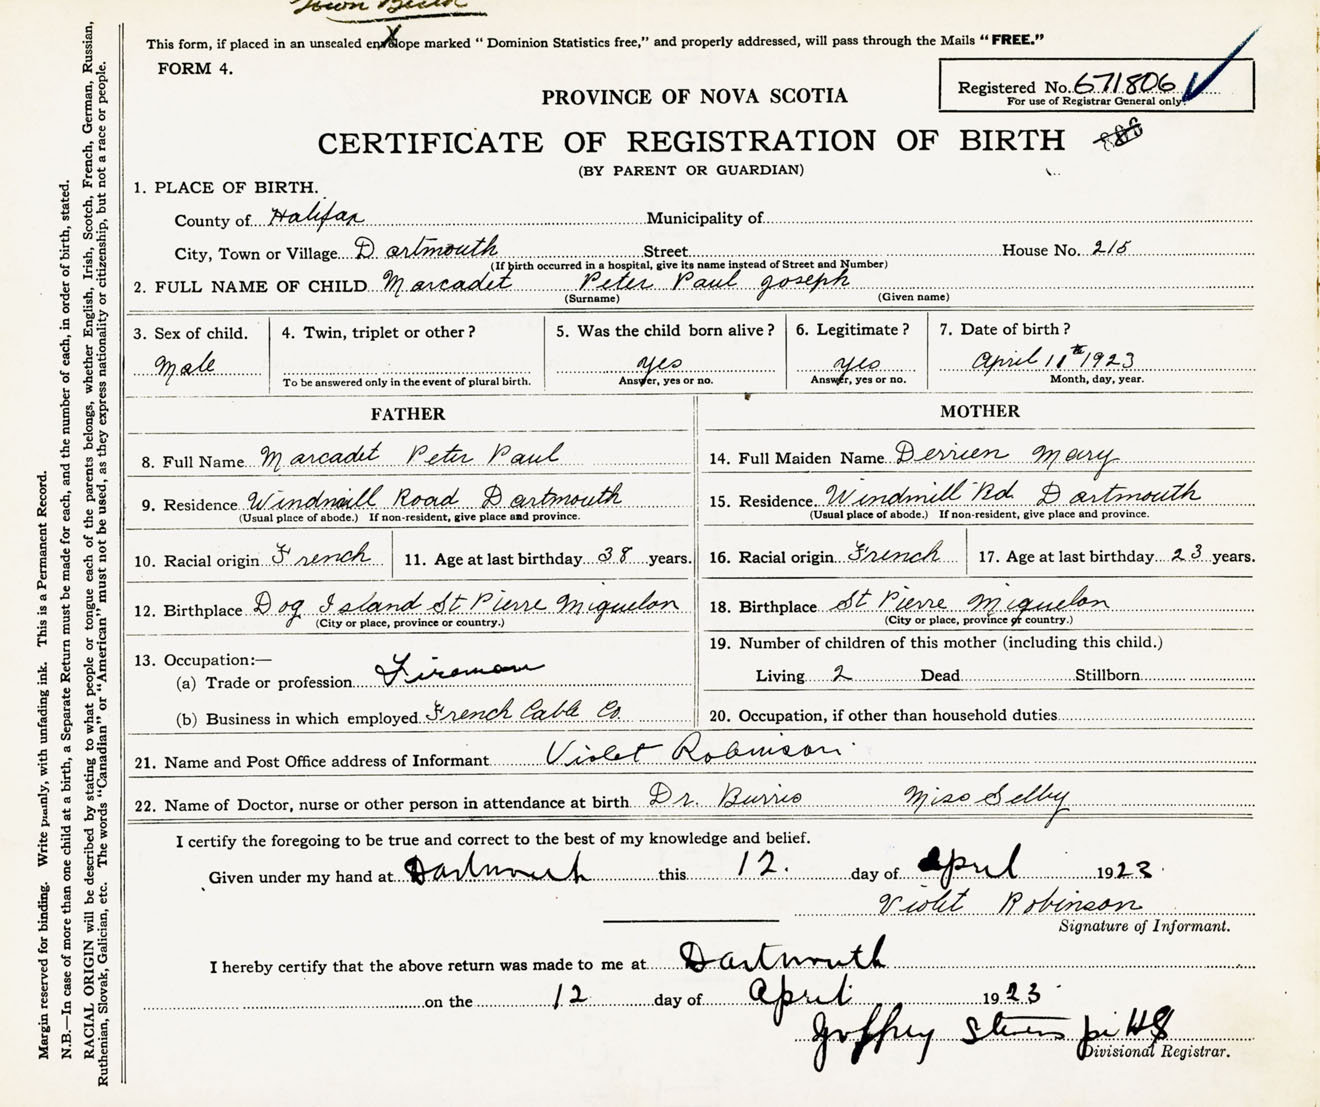 Town Birth
This form, if placed in an unsealed envelope marked “ Dominion Statistics free,” and properly addressed, will pass through the Mails “FREE.”
FORM 4.
Registered No. 671806
For use of Registrar General only.
PROVINCE OF NOVA SCOTIA
CERTIFICATE OF REGISTRATION OF BIRTH
(BY PARENT OR GUARDIAN)
1. PLACE OF BIRTH.
County of Halifax Municipality of
City, Town or Village Dartmouth Street House No. 215
(If birth occurred in a hospital, give its name instead of Street and Number)
2. FULL NAME OF CHILD Marcadet Peter Paul Joseph
(Surname) (Given name)
3. Sex of child. 4. Twin, triplet or other? 5. Was the child born alive? 6. Legitimate? 7. Date of birth?
Male yes yes April 11th 1923
To be answered only in the event of plural birth. Answer, yes or no. Answer, yes or no. Month, day, year.
FATHER MOTHER
8. Full Name Marcadet Peter Paul
9. Residence Windmill Road Dartmouth
(Usual place of abode.) If non-resident, give place and province.
10. Racial origin French 11. Age at last birthday 38 years.
12. Birthplace Dog Island St Pierre Miquelon
(City or place, province or country.)
13. Occupation:—
(a) Trade or profession Fireman
(b) Business in which employed French Cable Co.
14. Full Maiden Name Derrien Mary
15. Residence Windmill Rd. Dartmouth
(Usual place of abode.) If non-resident, give place and province.
16. Racial origin French 17. Age at last birthday 23 years.
18. Birthplace St Pierre Miquelon
(City or place, province or country.)
19. Number of children of this mother (including this child.)
Living 2 Dead Stillborn
20. Occupation, if other than household duties
21. Name and Post Office address of Informant Violet Robinson
22. Name of Doctor, nurse or other person in attendance at birth Dr. Burris Miss Selby
I certify the foregoing to be true and correct to the best of my knowledge and belief.
Given under my hand at Dartmouth this 12. day of April 1923
Violet Robinson
Signature of Informant.
I hereby certify that the above return was made to me at Dartmouth
on the 12 day of April 1923
Divisional Registrar.
Margin reserved for binding. Write plainly, with unfading ink. This is a Permanent Record.
N.B.—In case of more than one child at a birth, a Separate Return must be made for each, and the number of each, in order of birth, stated.
RACIAL ORIGIN will be described by stating to what people or tongue each of the parents belongs, whether English, Irish, Scotch, French, German, Russian,
Ruthenian, Slovak, Galician, etc. The words “Canadian” or “American” must not be used, as they express nationality or citizenship, but not a race or people.